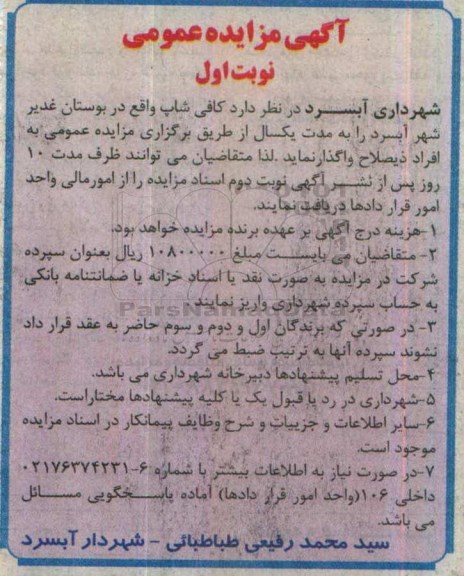 آگهی مزایده عمومی
نوبت اول
شهرداری آبسرد در نظر دارد کافی شاپ واقع در بوستان غدیر
شهر آبسرد را به مدت یکسال از طریق برگزاری مزایده عمومی به
افراد ذیصلاح واگذار نماید .لذا متقاضیان می توانند ظرف مدت ۱۰
روز پس از نشر آگهی نوبت دوم اسناد مزایده را از امورمالی واحد
امور قرار دادها دریافت نمایند.
۱-هزینه درج آگهی بر عهده برنده مزایده خواهد بود.
۲- متقاضیان می بایست مبلغ ۱۰۸۰۰۰۰۰ ریال بعنوان سپرده
شرکت در مزایده به صورت نقد یا اسناد خزانه یا ضمانتنامه بانکی
به حساب سپرده شهرداری واریز نمایند.
۳- در صورتی که برندگان اول و دوم و سوم حاضر به عقد قرار داد
نشوند سپرده آنها به ترتیب ضبط می گردد.
۴-محل تسلیم پیشنهادها دبیرخانه شهرداری می باشد.
۵-شهرداری در رد یا قبول یک یا کلیه پیشنهادها مختاراست.
۶-سایر اطلاعات و جزییات و شرح وظایف پیمانکار در اسناد مزایده
موجود است.
۷-در صورت نیاز به اطلاعات بیشتر با شماره ۶-۰۲۱۷۶۳۷۴۲۳۱
داخلی ۱۰۶(واحد امور قرار دادها) آماده پاسخگویی مسائل
می باشد.
سید محمد رفیعی طباطبائی - شهردار آبسرد